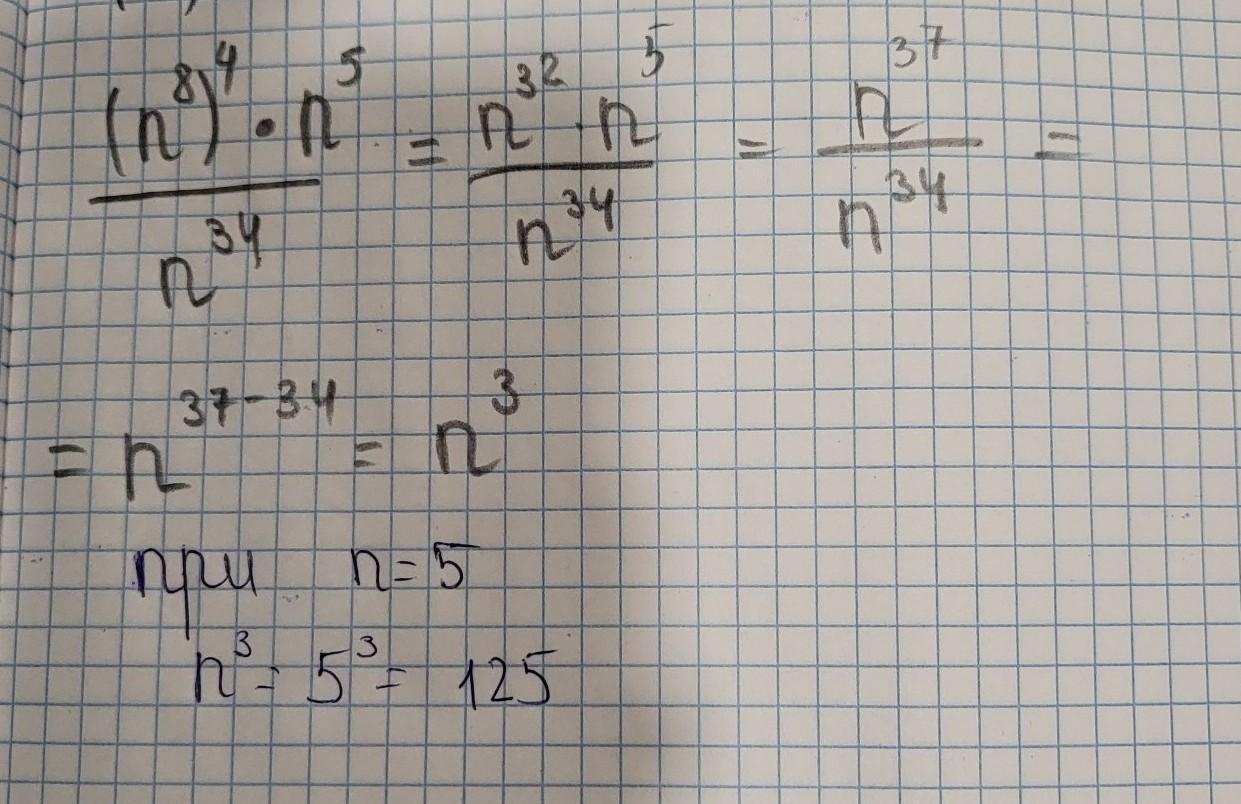 (n⁸)⁴ • n⁵ / n³⁴ = n³² · n⁵ / n³⁴ = n³⁷ / n³⁴ =
= n³⁷⁻³⁴ = n³
при n = 5
n³ = 5³ = 125